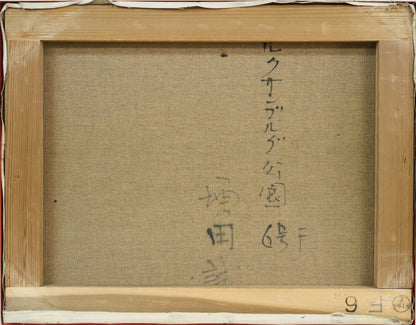 ルクサンブルグ公園
6号F
増田
F6